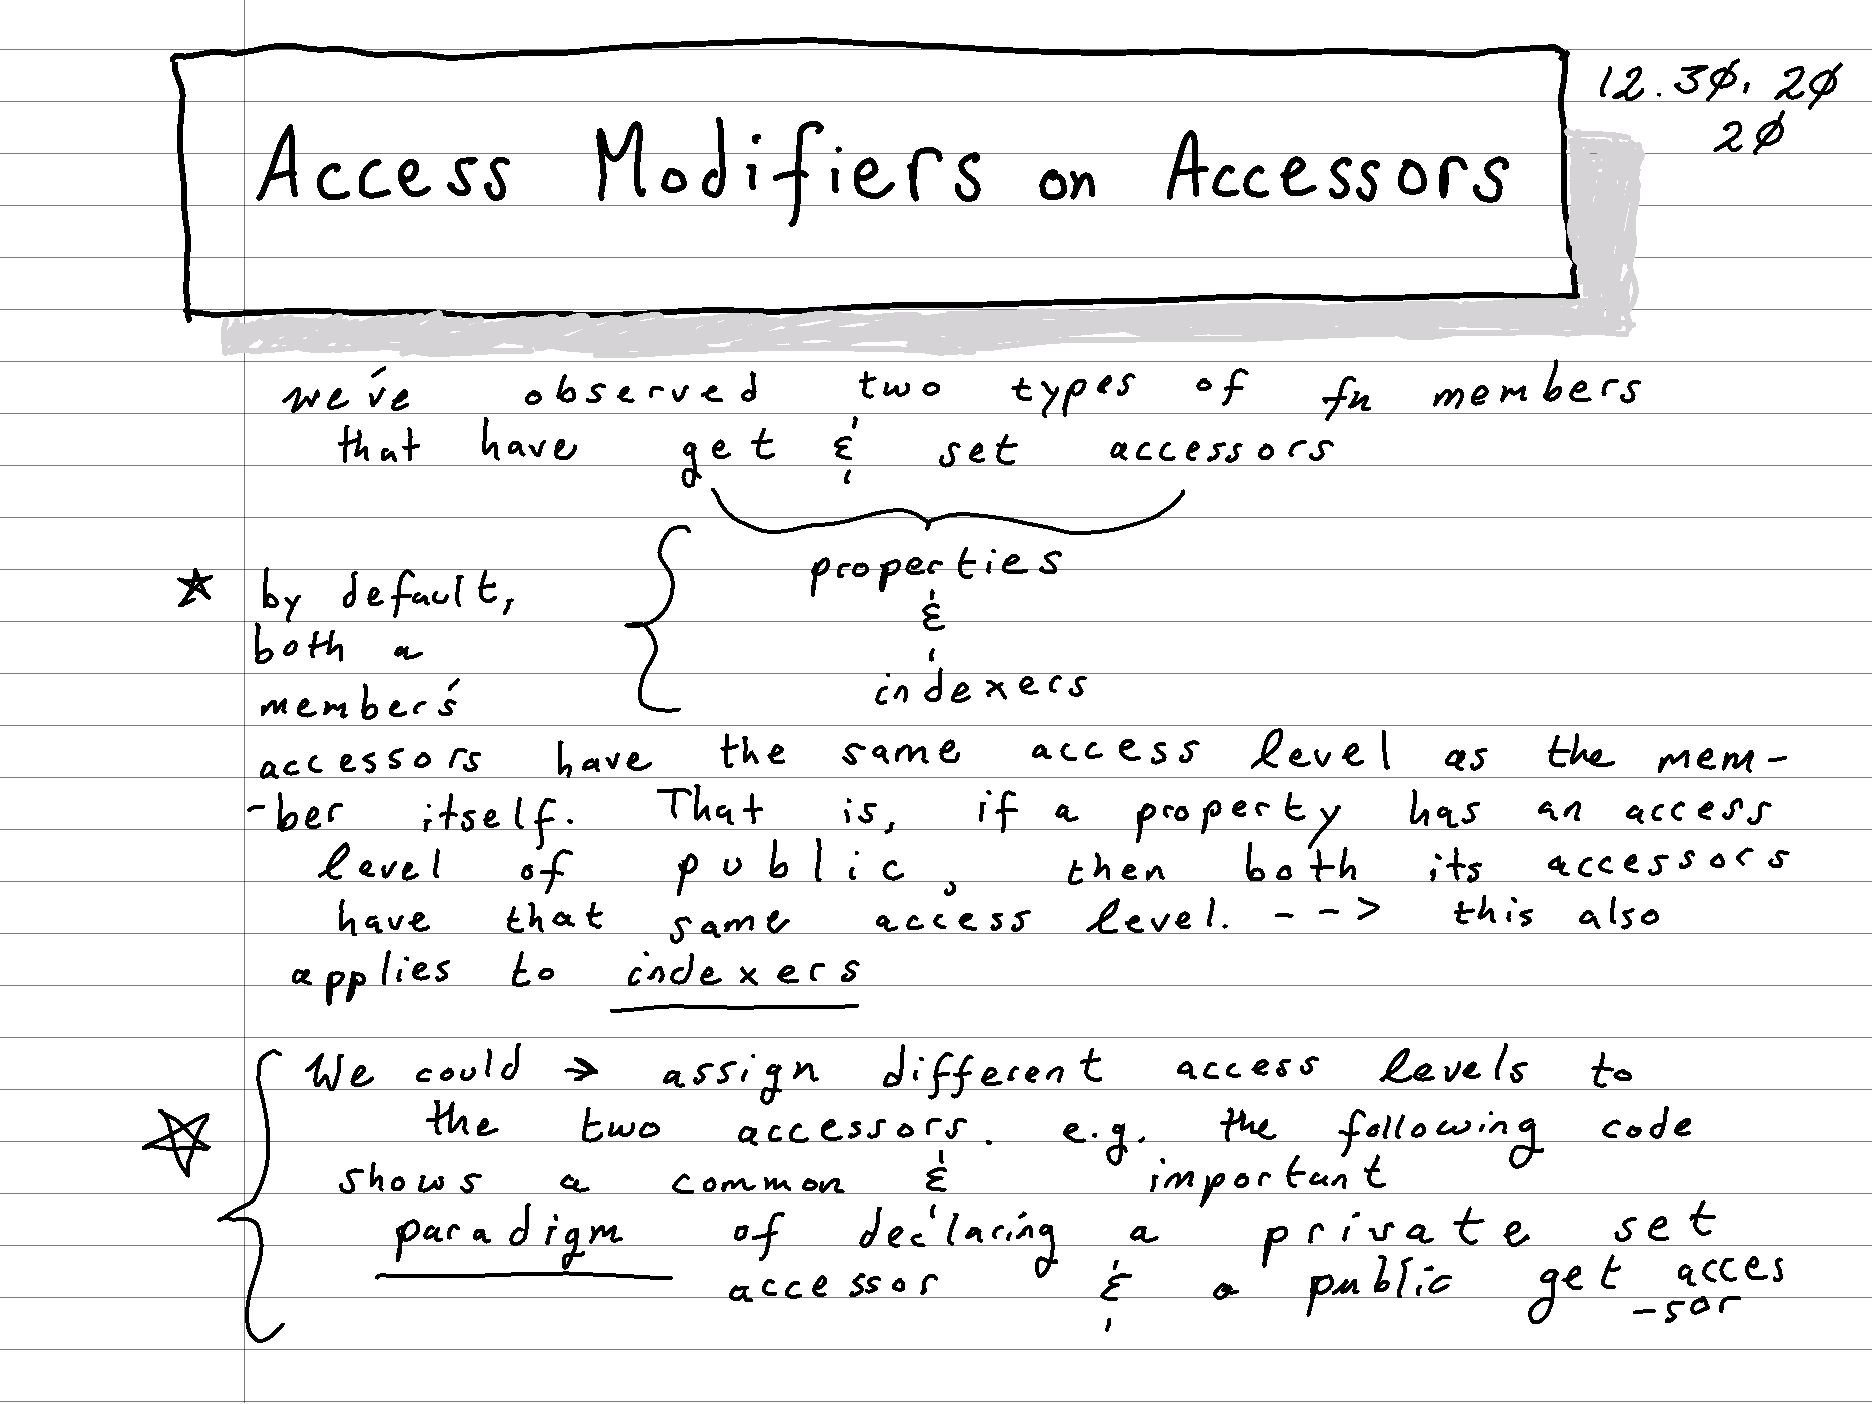 12.30.20
20
Access Modifiers on Accessors
we've observed two types of fn members
that have get & set accessors
properties
&
indexers
★ by default,
both a
member's
accessors have the same access level as the mem-
-ber itself. That is, if a property has an access
level of public, then both its accessors
have that same access level. --> this also
applies to indexers
We could → assign different access levels to
the two accessors. e.g. the following code
shows a common & important
paradigm of declaring a private set
accessor & a public get acces
-sor